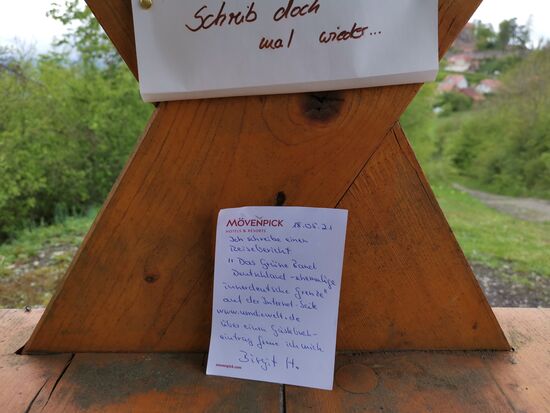 Schreib doch
mal wieder...
MÖVENPICK
HOTELS & RESORTS
18.05.21
Ich schreibe einen
Reisebericht
"Das Grüne Band
Deutschland - ehemalige
innerdeutsche Grenze"
auf der Internet-Seite
www.umdiewelt.de
über einen Gästebuch-
eintrag freue ich mich
Birgit H.
movenpick.com